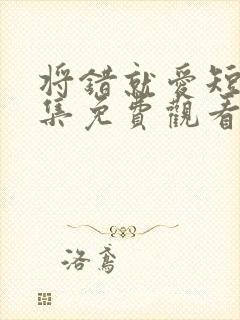 将错就爱短
集免費觀看
洛鳶